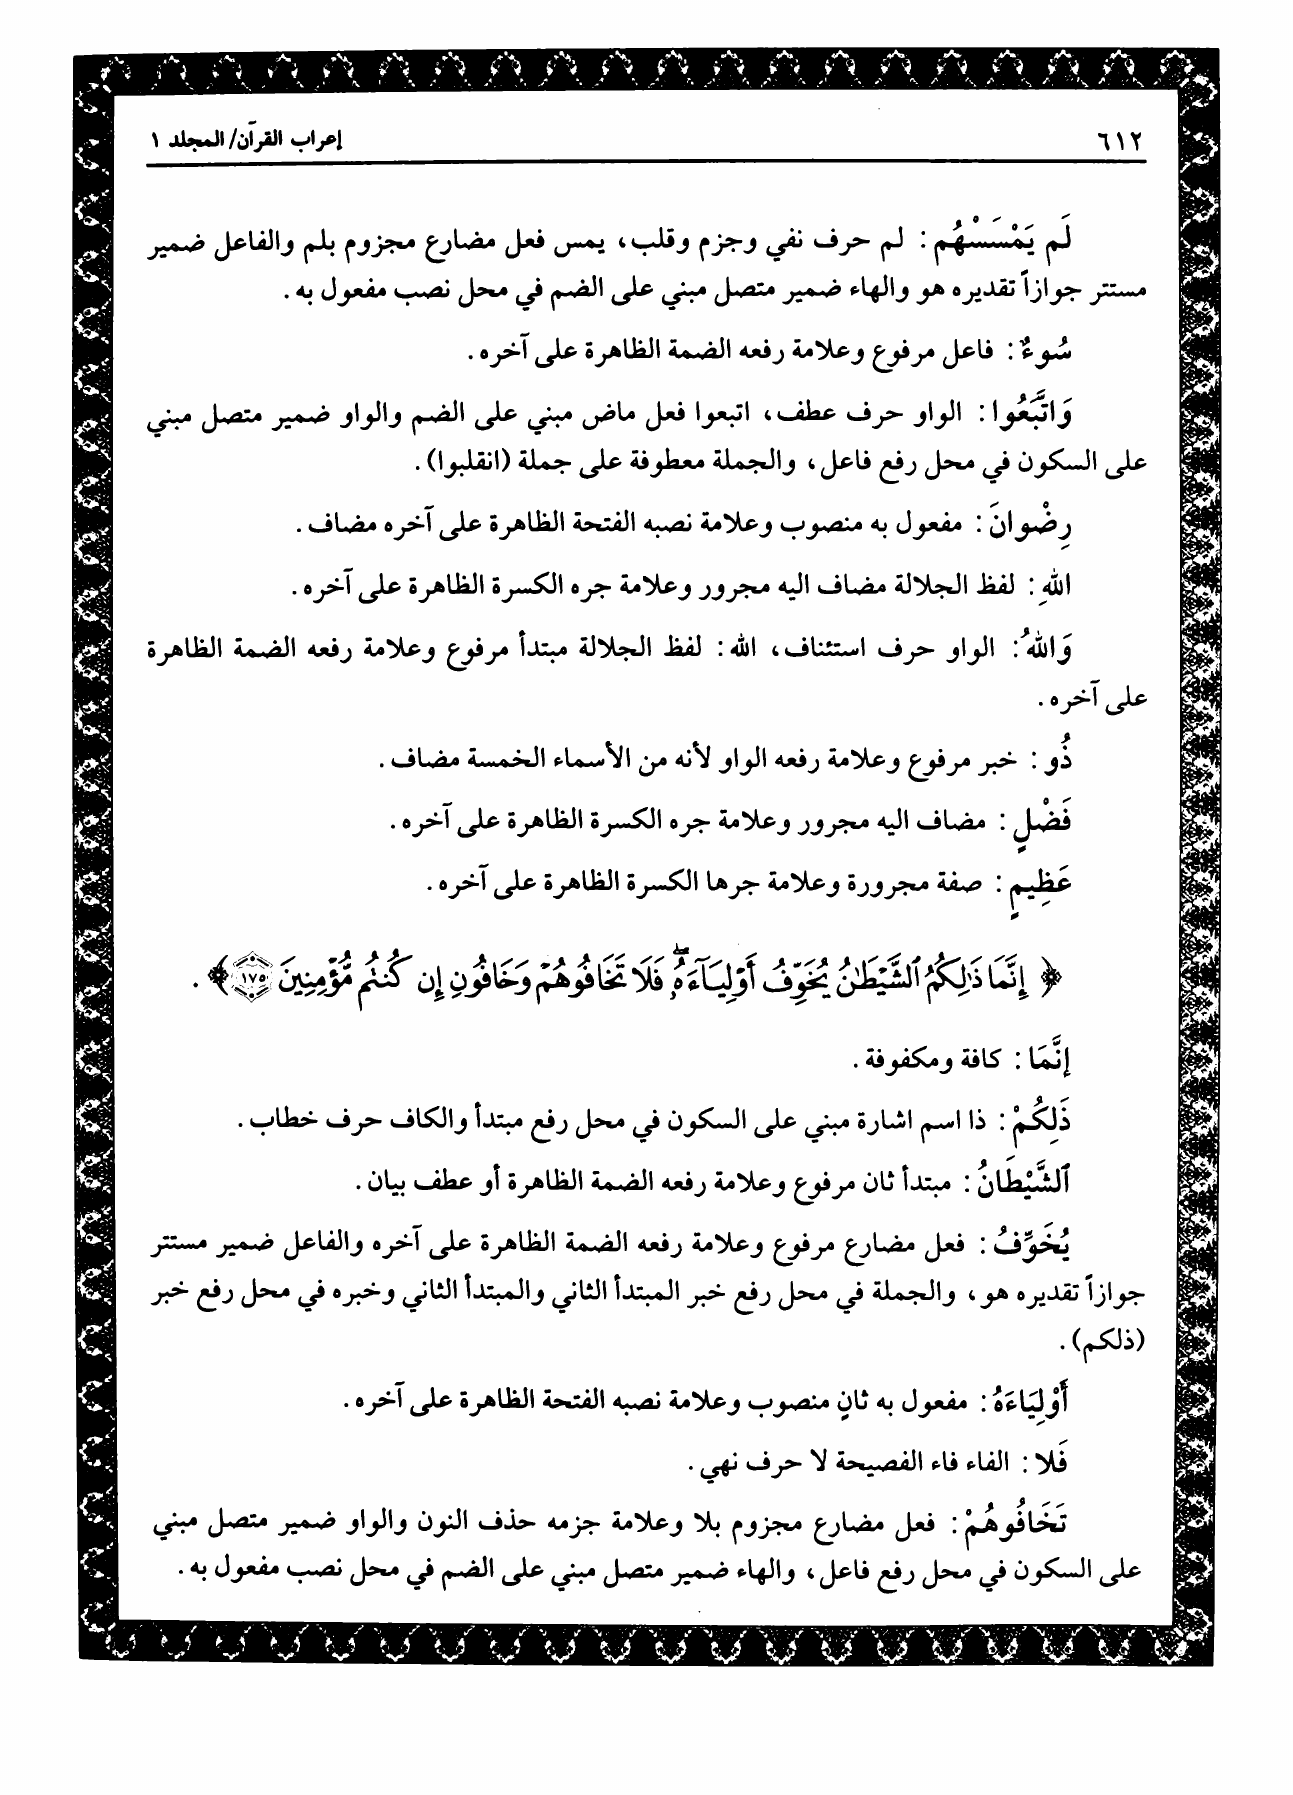 ٦١٢
إعراب القرآن/ المجلد ١
لَم يَمْسَسْهُم : لم حرف نفي وجزم وقلب، يمس فعل مضارع مجزوم بلم والفاعل ضمير
مستتر جوازاً تقديره هو والهاء ضمير متصل مبني على الضم في محل نصب مفعول به.
سُوءٌ: فاعل مرفوع وعلامة رفعه الضمة الظاهرة على آخره.
وَاتَّبَعُوا: الواو حرف عطف، اتبعوا فعل ماض مبني على الضم والواو ضمير متصل مبني
على السكون في محل رفع فاعل، والجملة معطوفة على جملة (انقلبوا).
رِضْوانَ: مفعول به منصوب وعلامة نصبه الفتحة الظاهرة على آخره مضاف.
اللهِ: لفظ الجلالة مضاف اليه مجرور وعلامة جره الكسرة الظاهرة على آخره.
وَاللهُ: الواو حرف استئناف، الله: لفظ الجلالة مبتدأ مرفوع وعلامة رفعه الضمة الظاهرة
على آخره.
ذُو: خبر مرفوع وعلامة رفعه الواو لأنه من الأسماء الخمسة مضاف.
فَضْلٍ: مضاف اليه مجرور وعلامة جره الكسرة الظاهرة على آخره.
عَظِيمٍ: صفة مجرورة وعلامة جرها الكسرة الظاهرة على آخره.
﴿ إِنَّمَا ذَٰلِكُمُ ٱلشَّيْطَٰنُ يُخَوِّفُ أَوْلِيَآءَهُۥۖ فَلَا تَخَافُوهُمْ وَخَافُونِ إِن كُنتُم مُّؤْمِنِينَ ١٧٥﴾ .
إنَّمَا: كافة ومكفوفة.
ذَلِكُمْ: ذا اسم اشارة مبني على السكون في محل رفع مبتدأ والكاف حرف خطاب.
ٱلشَّيْطَانُ: مبتدأ ثان مرفوع وعلامة رفعه الضمة الظاهرة أو عطف بيان.
يُخَوِّفُ: فعل مضارع مرفوع وعلامة رفعه الضمة الظاهرة على آخره والفاعل ضمير مستتر
جوازاً تقديره هو، والجملة في محل رفع خبر المبتدأ الثاني والمبتدأ الثاني وخبره في محل رفع خبر
(ذلكم).
أَوْلِيَاءَهُ: مفعول به ثانٍ منصوب وعلامة نصبه الفتحة الظاهرة على آخره.
فَلا: الفاء فاء الفصيحة لا حرف نهي.
تَخَافُوهُمْ: فعل مضارع مجزوم بلا وعلامة جزمه حذف النون والواو ضمير متصل مبني
على السكون في محل رفع فاعل، والهاء ضمير متصل مبني على الضم في محل نصب مفعول به.